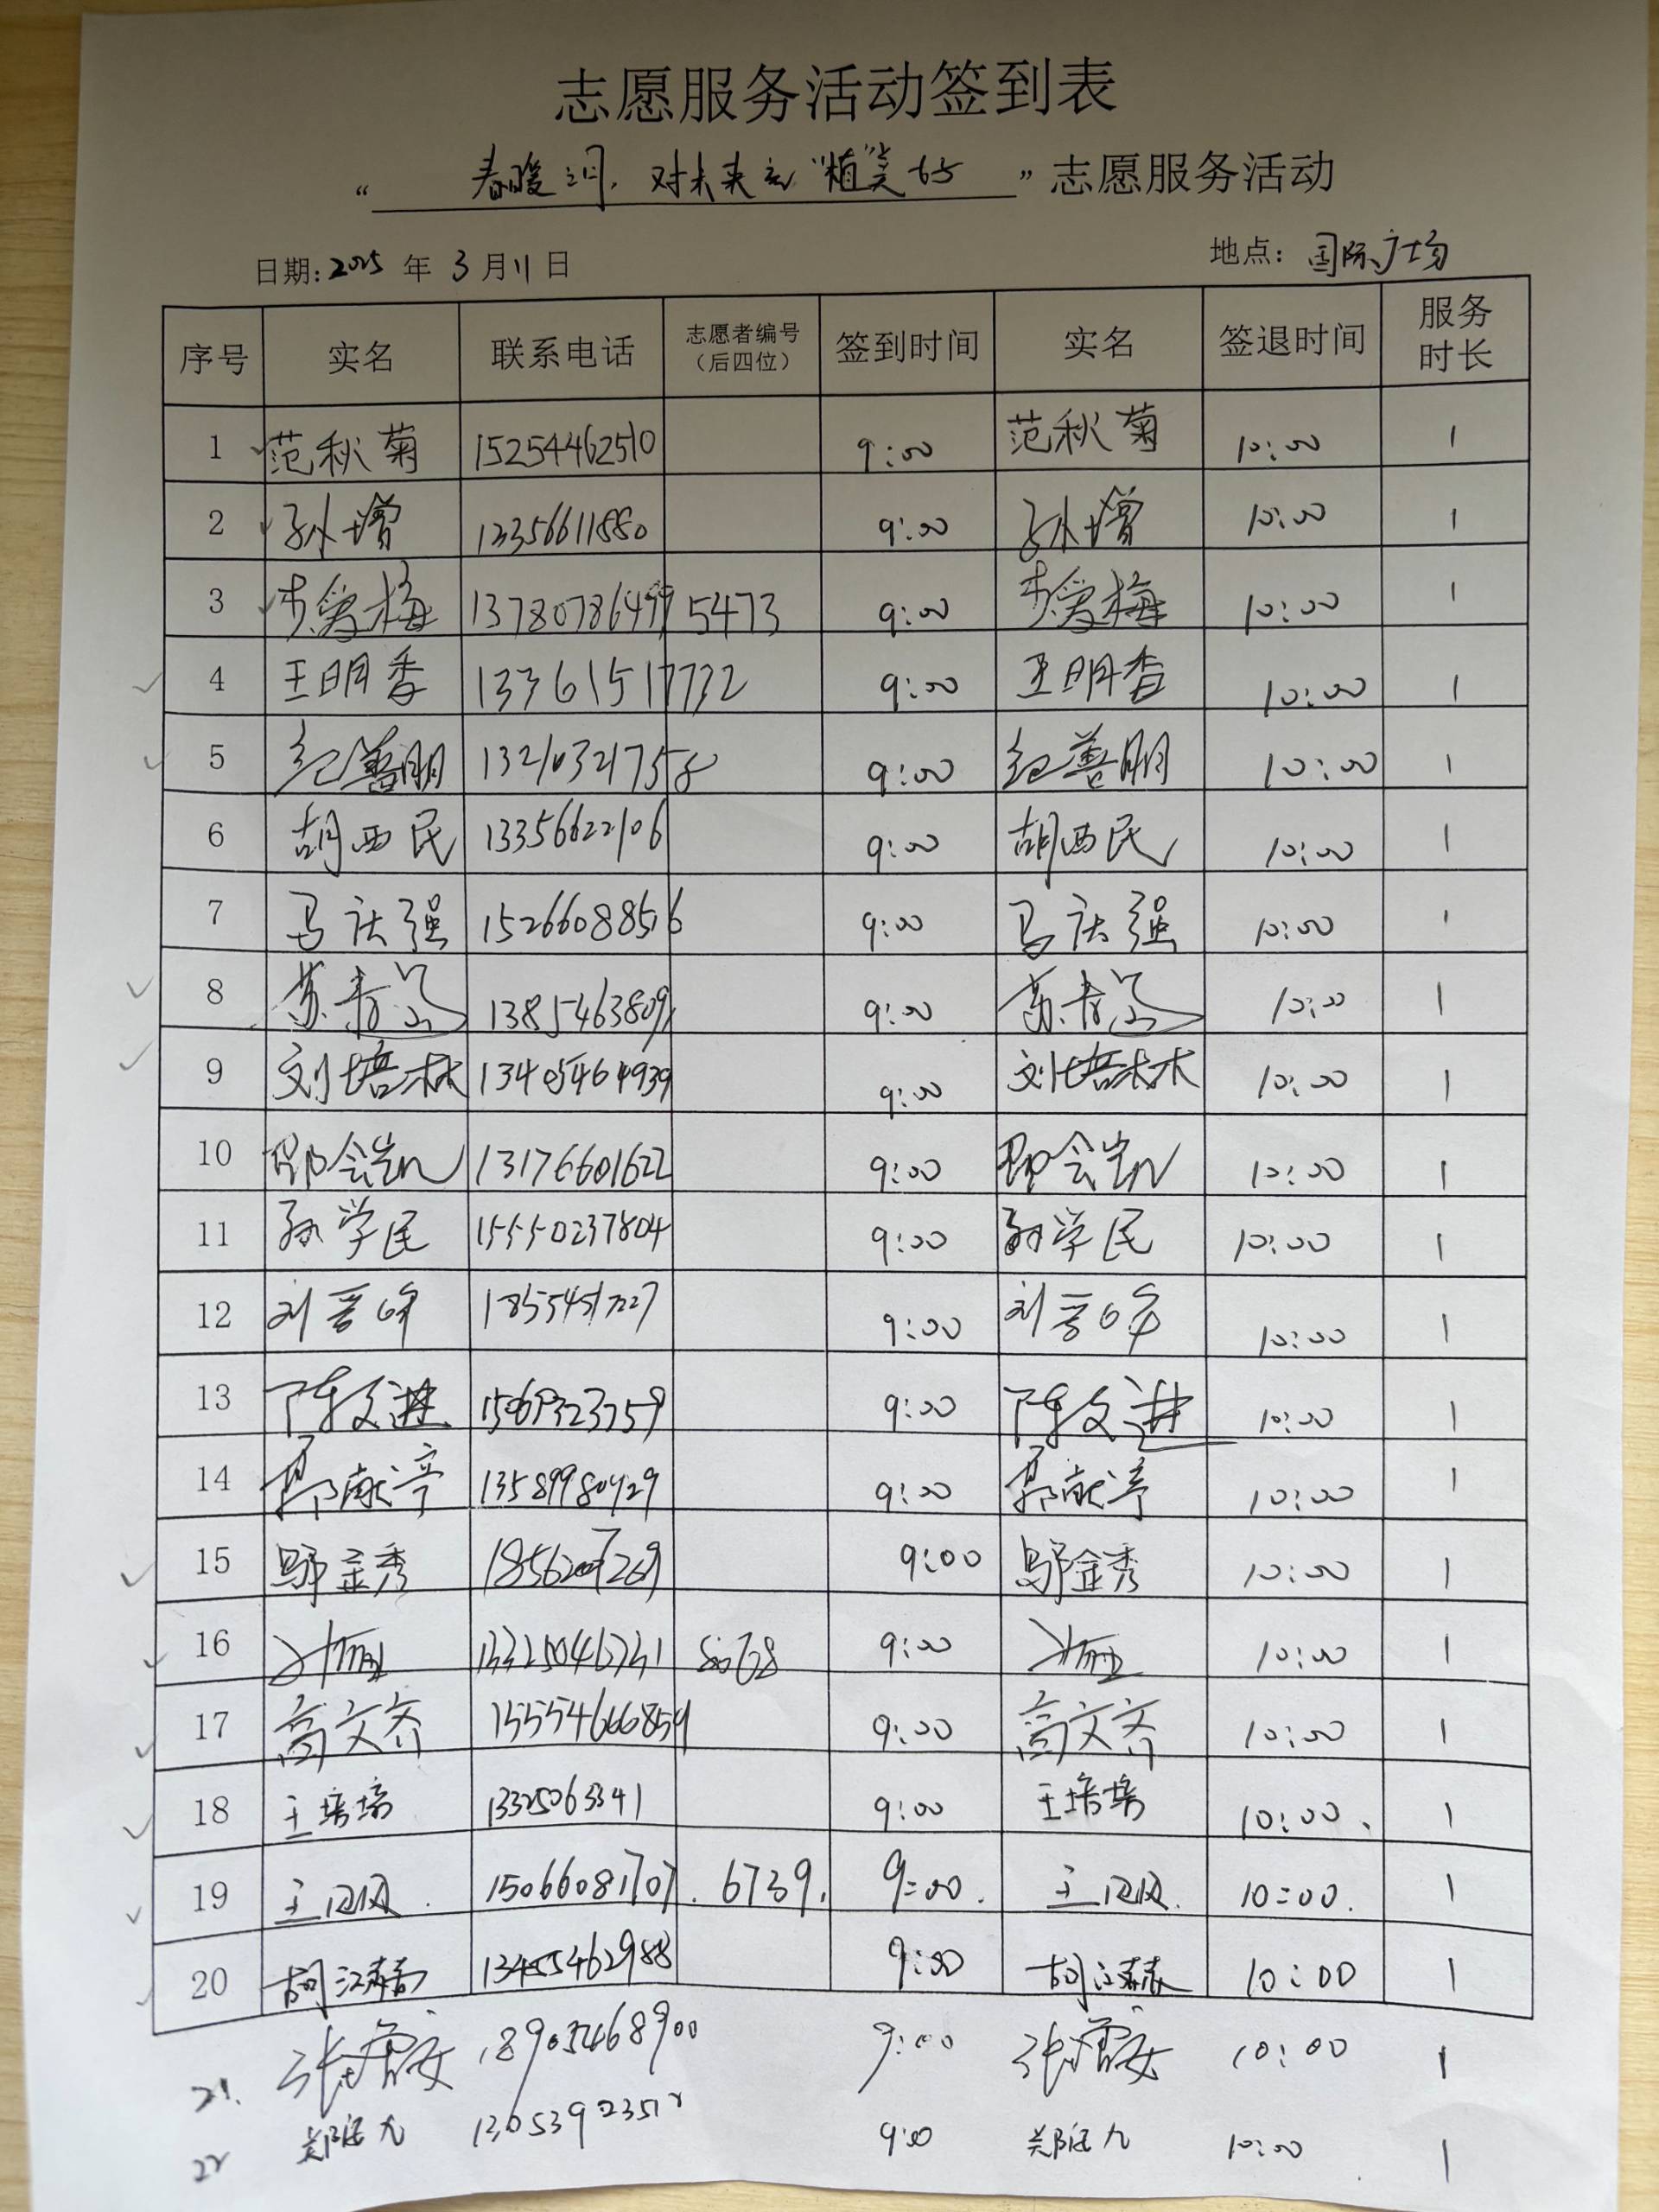 志愿服务活动签到表
“春暖三月,对未来 “植”美好”志愿服务活动
日期:2025年3月11日 地点:国际广场
序号 实名 联系电话 志愿者编号(后四位) 签到时间 实名 签退时间 服务时长
1 范秋菊 15254462510 9:00 范秋菊 10:00 1
2 孙增 13356611880 9:00 孙增 10:00 1
3 步爱梅 13780786499 5473 9:00 步爱梅 10:00 1
4 王明香 13361517732 9:00 王明香 10:00 1
5 纪善明 13210321758 9:00 纪善明 10:00 1
6 胡西民 13356622106 9:00 胡西民 10:00 1
7 马庆强 15266088516 9:00 马庆强 10:00 1
8 苏 1385463809 9:00 苏 10:00 1
9 刘培林 13405464939 9:00 刘培林 10:00 1
10 邵会 13176601622 9:00 邵会 10:00 1
11 孙学民 15550237804 9:00 孙学民 10:00 1
12 刘 9:00 刘 10:00 1
13 陈文进 9:00 陈文进 10:00 1
14 13589980929 9:00 10:00 1
15 邬金秀 9:00 邬金秀 10:00 1
16 13325046731 9:00 10:00 1
17 高文齐 15554666859 9:00 高文齐 10:00 1
18 王培培 13325063341 9:00 王培培 10:00. 1
19 王卫风. 15066081707. 6739. 9:00. 王卫风. 10:00. 1
20 胡 13455462988 9:00 胡 10:00 1
21. 张雪安 18905468900 9:00 张雪安 10:00 1
22 郑 9:00 郑 10:00 1